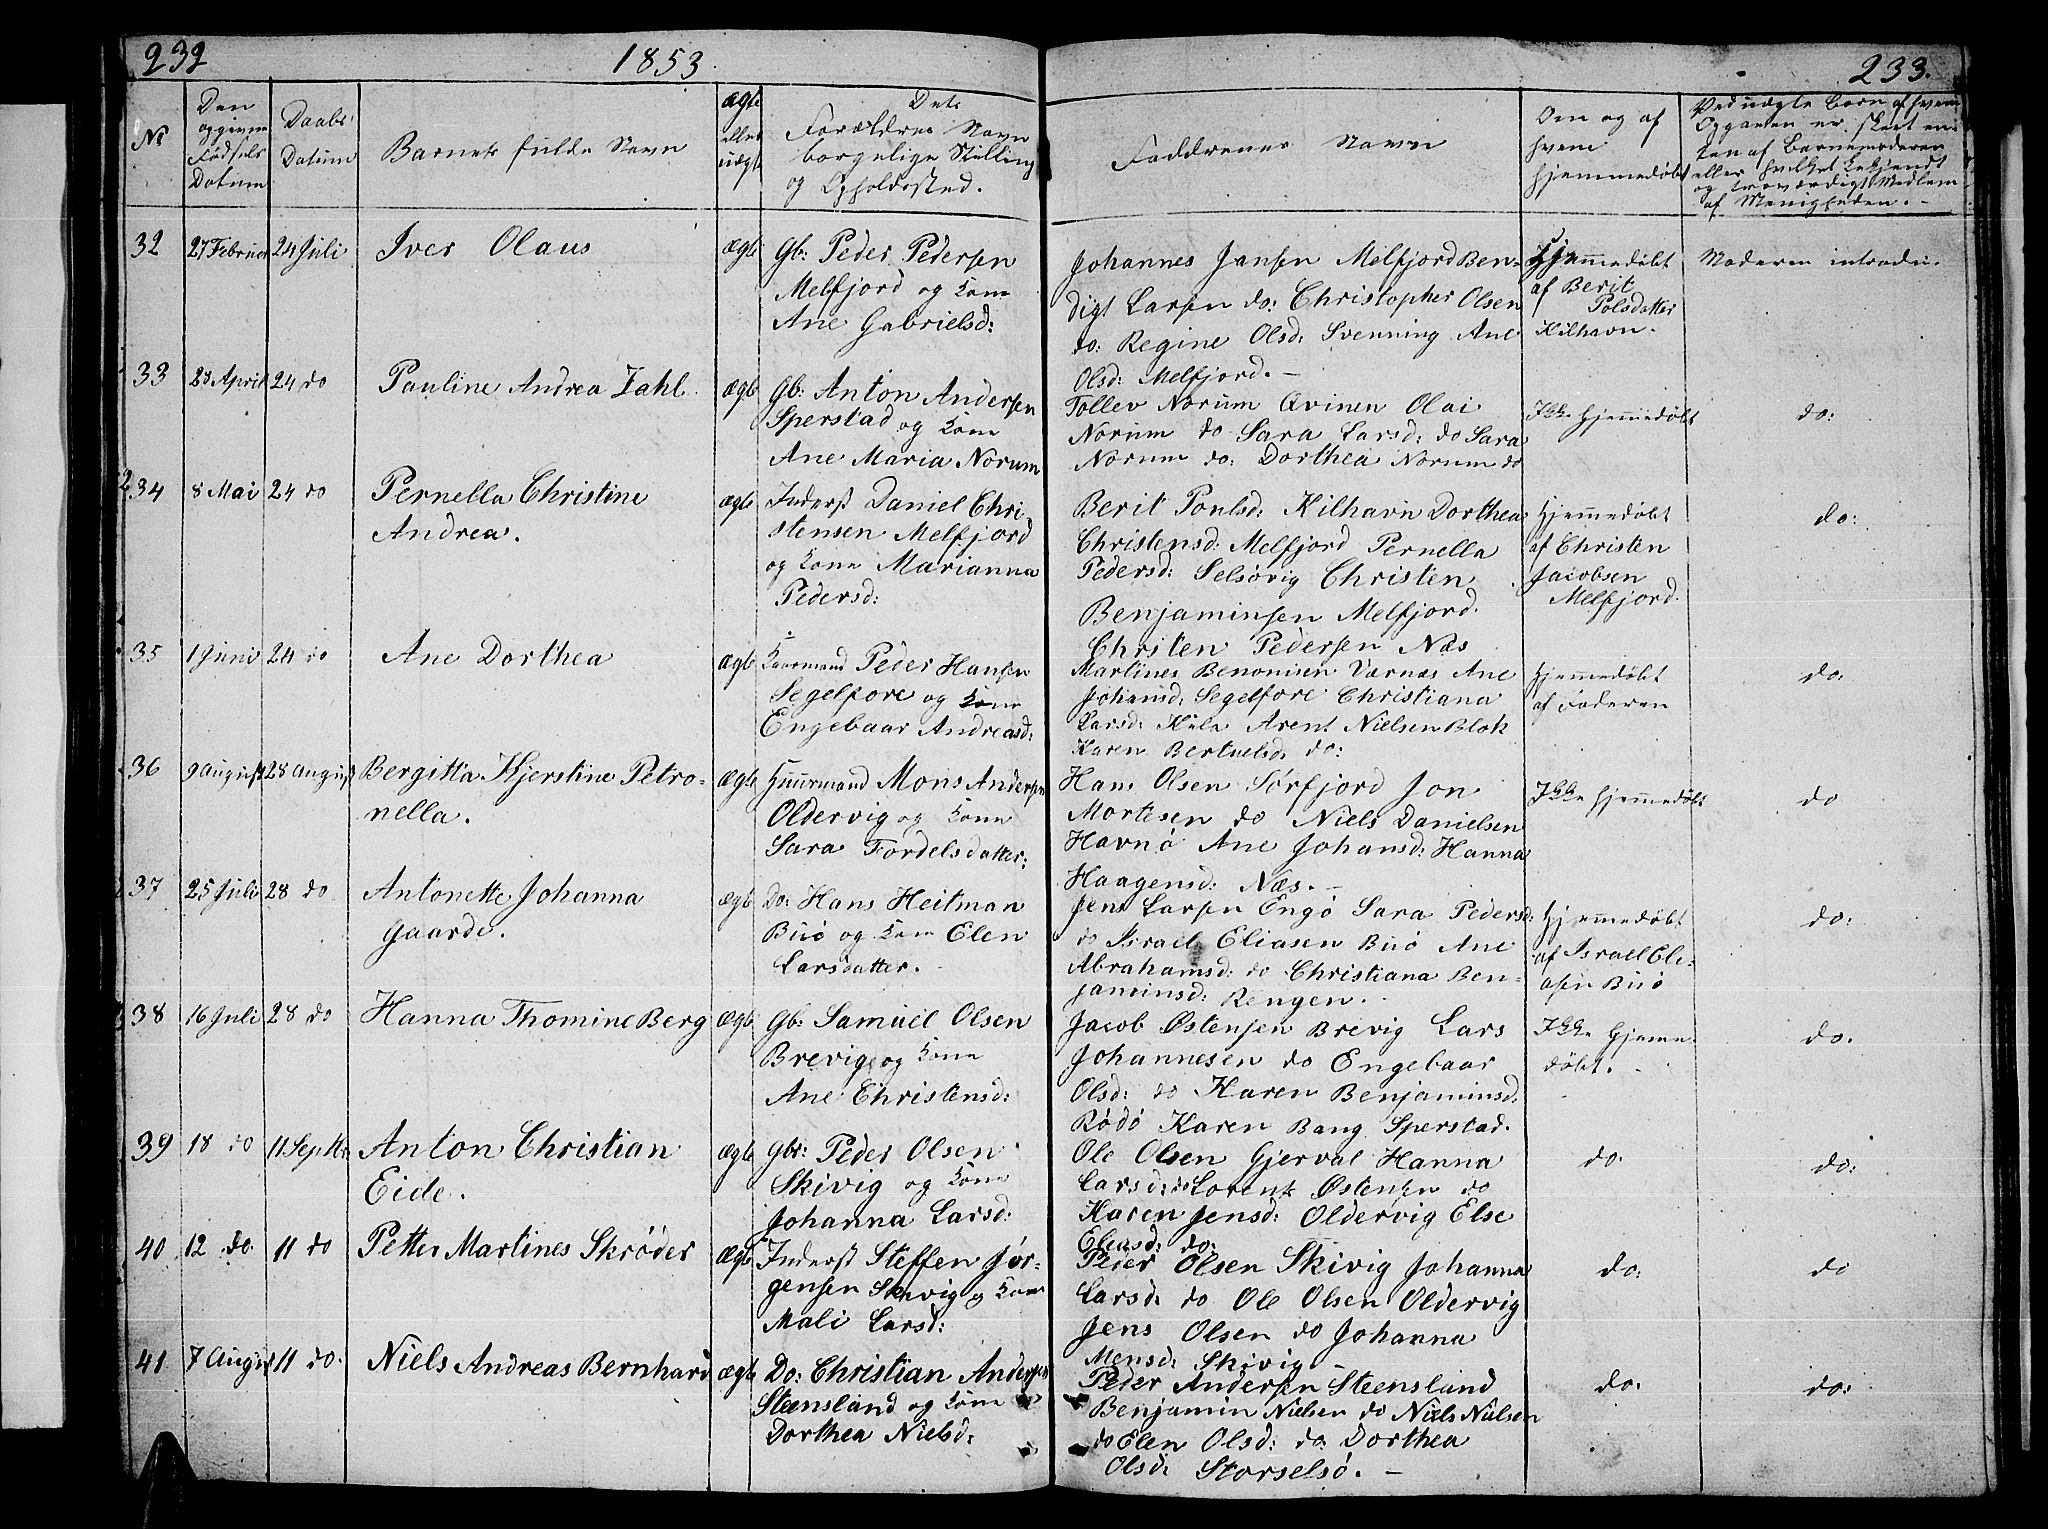 232
1853.
Nr
Den
opgivne
Fødsels
Datum
Daabs
Datum
Barnets fulde Navn
ægte
eller
uægte
Dets
Forældres Navn
borgelige Stilling
og Opholdssted.
32 27 Februar 24 Juli Iver Olaus ægte Gb: Peder Pedersen
Melfjord og Kone
Ane Gabrielsd:
33 28 April 24 do Pauline Andrea Zahl ægte Gb: Anton Andersen
Sperstad og Kone
Ane Maria Norum
34 8 Mai 24 do Pernella Christine ægte Inderst Daniel Chri
Andrea. stensen Melfjord
og Kone Marianna
Pedersd:
35 1 Juni 24 do Ane Dorthea ægte Kaarmand Peder Hansen
Segelfore og Kone
Engebaar Andreasd:
36 9 August 28 August Bergitta Kjerstine Petro- ægte Huusmand Mons Andersen
nella. Oldervig og Kone
Sara Fordelsdatter:
37 25 Juli 28 do Antonette Johanna ægte Do: Hans Heitman
Gaarde. Buø og Kone Elen
Larsdatter.
38 16 Juli 28 do Hanna Thomine Berg ægte Gb: Samuel Olsen
Brevig og Kone
Ane Christensd:
39 18 do 11 Septbr Anton Christian ægte Gbr: Peder Olsen
Eide. Skivig og Kone
Johanna Larsd:
40 12 do. 11 do Petter Martines Skrøder ægte Inderst Steffen Jør-
gensen Skivig og Kone
Mali Larsd:
41 7 August 11 do. Niels Andreas Bernhard ægte Do: Christian Andersen
Steensland og Kone
Dorthea Nielsd:
233.
Faddrenes Navn
Om og af
hvem
hjemmedøbt
Ved uægte Børn af hvem
Opgaven er skeet en-
ten af Barnemoderen
eller hvilket bekjendt
og troværdigt Medlem
af Menigheden.
Johannes Jansen Melfjord Ben- Hjemmedøbt Moderen introdu.
digt Larsen do: Christopher Olsen af Berit
do: Regine Olsd: Svenning Ane Polsdatter
Olsd: Melfjord. Kilhavn.
Tollev Norum Qvinen Olai Ikke hjemmedøbt do:
Norum do Sara Larsd: do Sara
Norum do: Dorthea Norum do
Berit Poulsd: Kilhavn Dorthea Hjemmedøbt do:
Christensd: Melfjord Pernella af Christen
Pedersd: Selsøvig Christen Jacobsen
Benjaminsen Melfjord. Melfjord.
Christen Pedersen Næs
Martines Benonisen Værnæs Ane Hjemmedøbt do:
Johansd: Segelfore Christiana af Faderen
Larsd: Kila Arent Nielsen Blok
Karen Bertuelsd: do:
Hans Olsen Sørfjord Jon Ikke hjemmedøbt do
Mortesen do Niels Danielsen
Havnø Ane Johansd: Hanna
Haagensd: Næs.
Jens Larsen Engø Sara Pedersd: Hjemmedøbt do:
do Israel Eliasen Buø Ane af Israel Eli-
Abrahamsd: do Christiana Ben- asen Buø
jaminsd: Rengen.
Jacob Østensen Brevig Lars Ikke hjemme- do.
Johannesen do Engebaar døbt.
Olsd: do Karen Benjaminsd.
Rødø Karen Bang Sperstad.
Ole Olsen Gjerval Hanna do: do:
Larsd: do Lorents Østensen do
Karen Jensd: Oldervig Else
Eliasd: do:
Peder Olsen Skivig Johanna do: do
Larsd: do Ole Olsen Oldervig
Jens Olsen do Johanna
Mensd: Skivig
Peder Andersen Steensland do: do:
Benjamin Nielsen do Niels Nielsen
do Elen Olsd: do Dorthea
Olsd: Storselsø.